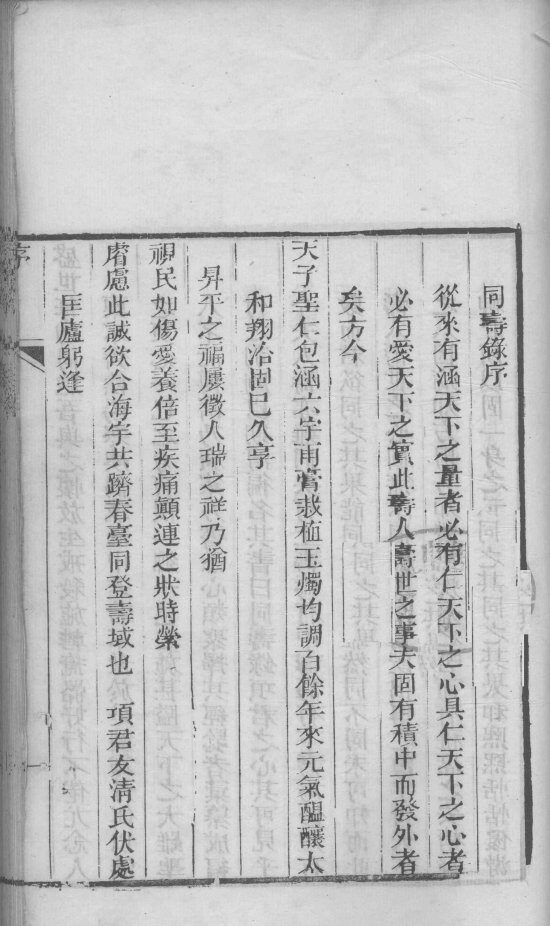 同壽錄序
從來有涵天下之量者必有仁天下之心具仁天下之心者
必有愛天下之實此壽人壽世之事夫固有積中而發外者
矣方今
天子聖仁包涵六宇甫膏栽植玉燭均調百餘年來元氣醞釀太
和翔洽固已久享
昇平之福屢徵人瑞之祥乃猶
視民如傷愛養倍至疾痛顛連之狀時縈
睿慮此誠欲合海宇共躋春臺同登壽域也 項君友清氏伏處
匡廬躬逢
序
一